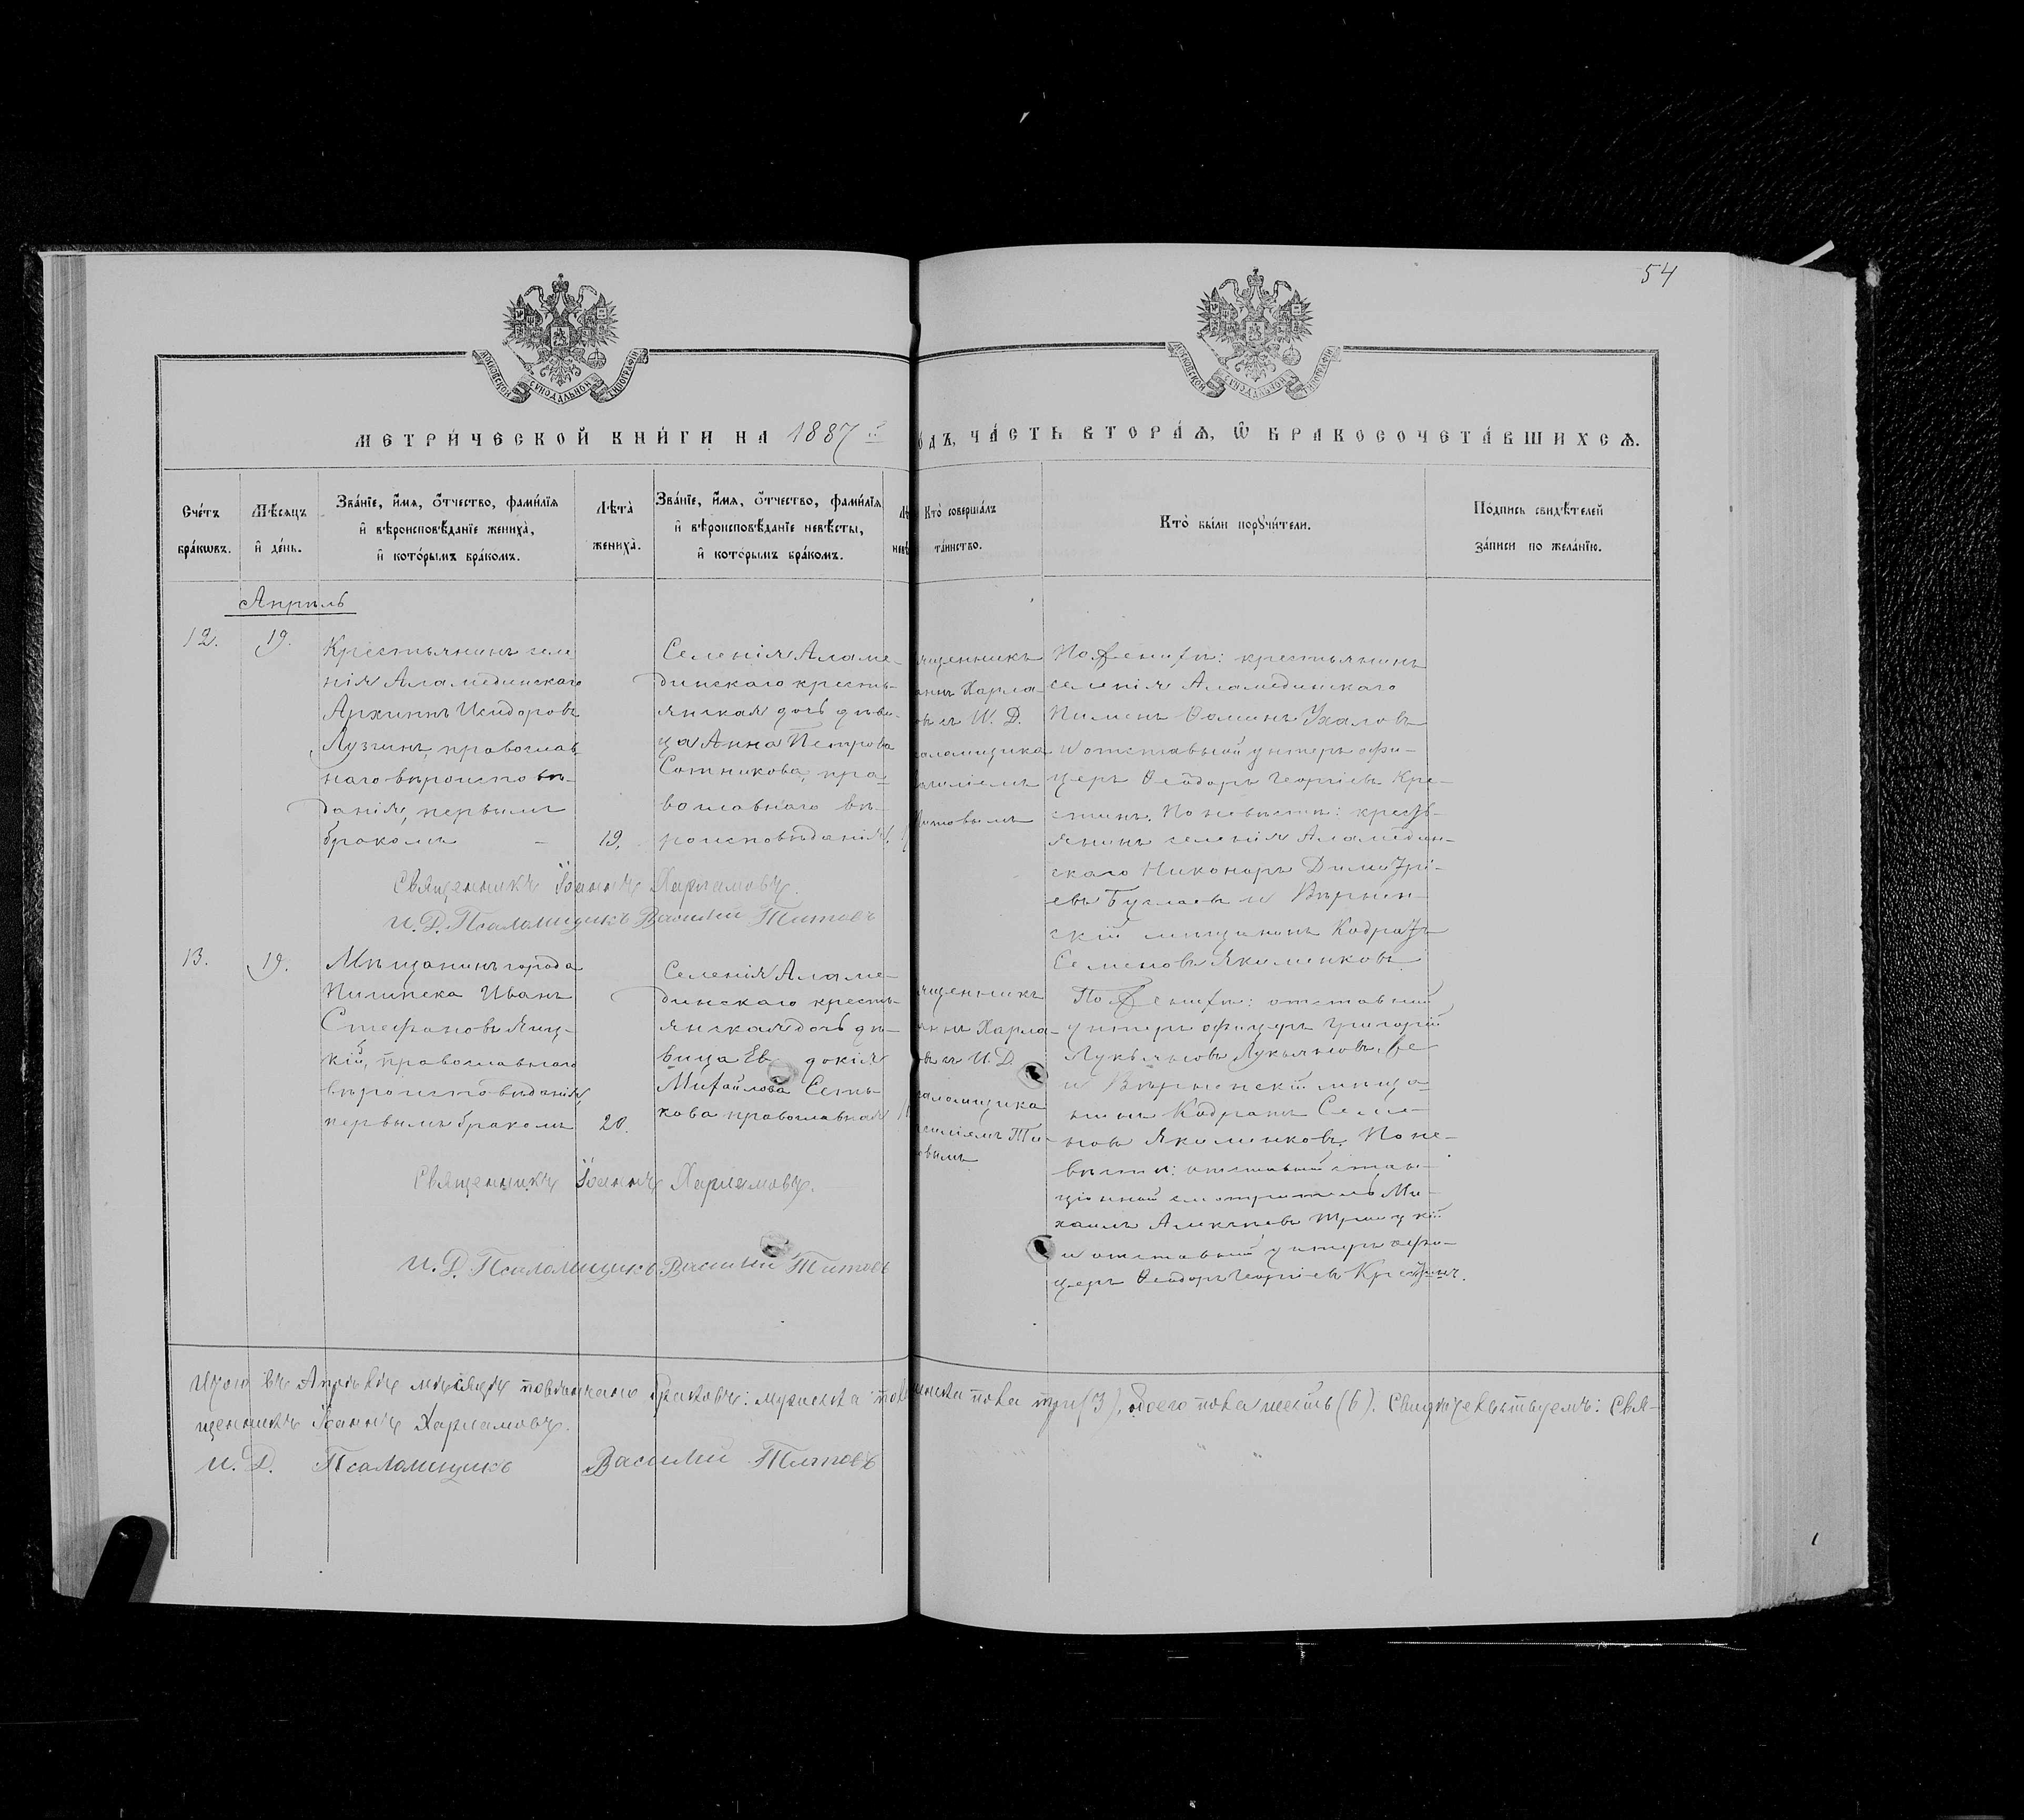 54
МОСКОВСКОЙ СѴНОДАЛЬНОЙ ТИПОГРАФІИ
МОСКОВСКОЙ СѴНОДАЛЬНОЙ ТИПОГРАФІИ
МЕТРИ́ЧЕСКОЙ КНИ́ГИ НА 1887 й
о́дъ, ЧА́СТЬ ВТОРА́Ѧ, Ѽ БРАКОСОЧЕТА́ВШИХСѦ.
Сче́тъ бра́кѡвъ.
Мѣ́сяцъ и҆ де́нь.
Зва́нїе, и҆́мя, ѻ҆́тчество, фами́лїя
и҆ вѣроисповѣ́данїе жениха̀,
и҆ кото́рымъ бра́комъ.
Лѣ́та жениха̀.
Зва́нїе, и҆́мя, ѻ҆́тчество, фами́лїя
и҆ вѣроисповѣ́данїе невѣ́сты,
и҆ кото́рымъ бра́комъ.
Кто̀ соверша́лъ
та́инство.
Кто̀ бы́ли порꙋчи́тели.
По́дпись свидѣ́телей
за́писи по жела́нїю.
Апрѣль
12.
19.
Крестьянинъ селе-
нія Аламединскаго
Архипъ Исидоровъ
Лузгинъ, православ
наго вѣроисповѣ-
данія, первымъ
бракомъ –
19.
Селенія Аламе-
динскаго кресть-
янская дочь дѣви-
ца Анна Петрова
Сотникова, пра-
вославнаго вѣ-
роисповѣданія.
ященникъ
аннъ Харла-
овъ съ И. Д.
саломщика
асиліемъ
Титовымъ
По женихѣ: крестьянинъ
селенія Аламединскаго
Пименъ Ѳоминъ Ухаловъ
и отставной унтеръ офи-
церъ Ѳеодоръ Георгіевъ Кре-
стинъ. По невѣстѣ: кресть-
янинъ селенія Аламедин-
скаго Никоноръ Димитрі-
евъ Буглаевъ и Вѣрнен-
скій мѣщанинъ Кодратъ
Семеновъ Якименковъ
Священникъ Іоаннъ Харламовъ.
И. Д. Псаломщикъ Василій Титовъ
13.
19.
Мѣщанинъ города
Пишпека Иванъ
Стефановъ Яиц-
кій, православнаго
вѣроисповѣданія,
первымъ бракомъ
20.
Селенія Аламе-
динскаго кресть-
янская дочь дѣ-
вица Ев докія
Михайлова Сень-
кова православная
ященникъ
аннъ Харла-
овъ съ И. Д.
саломщика
асиліемъ Ти-
овымъ
По женихѣ: отставной
унтеръ офицеръ Григорій
Лукьяновъ Лукьяновъ же
и Вѣрненскій мѣща-
нинъ Кодратъ Семе-
новъ Якименковъ. По не-
вѣстѣ: отставной стан-
ціонной смотритель Ми-
хаилъ Алексѣевъ Троицкій
и отставной унтеръ офи-
церъ Ѳеодоръ Георгіевъ Крестинъ.
Священникъ Іоаннъ Харламовъ.
И. Д. Псаломщикъ Василій Титовъ
Итого въ Апрѣлѣ мѣсяцѣ повѣнчано браковъ: мужска пол женска пола три (3), обоего пола шесть (6). Свидѣтельствуемъ: Свя-
щенникъ Іоаннъ Харламовъ.
И. Д. Псаломщикъ Василій Титовъ